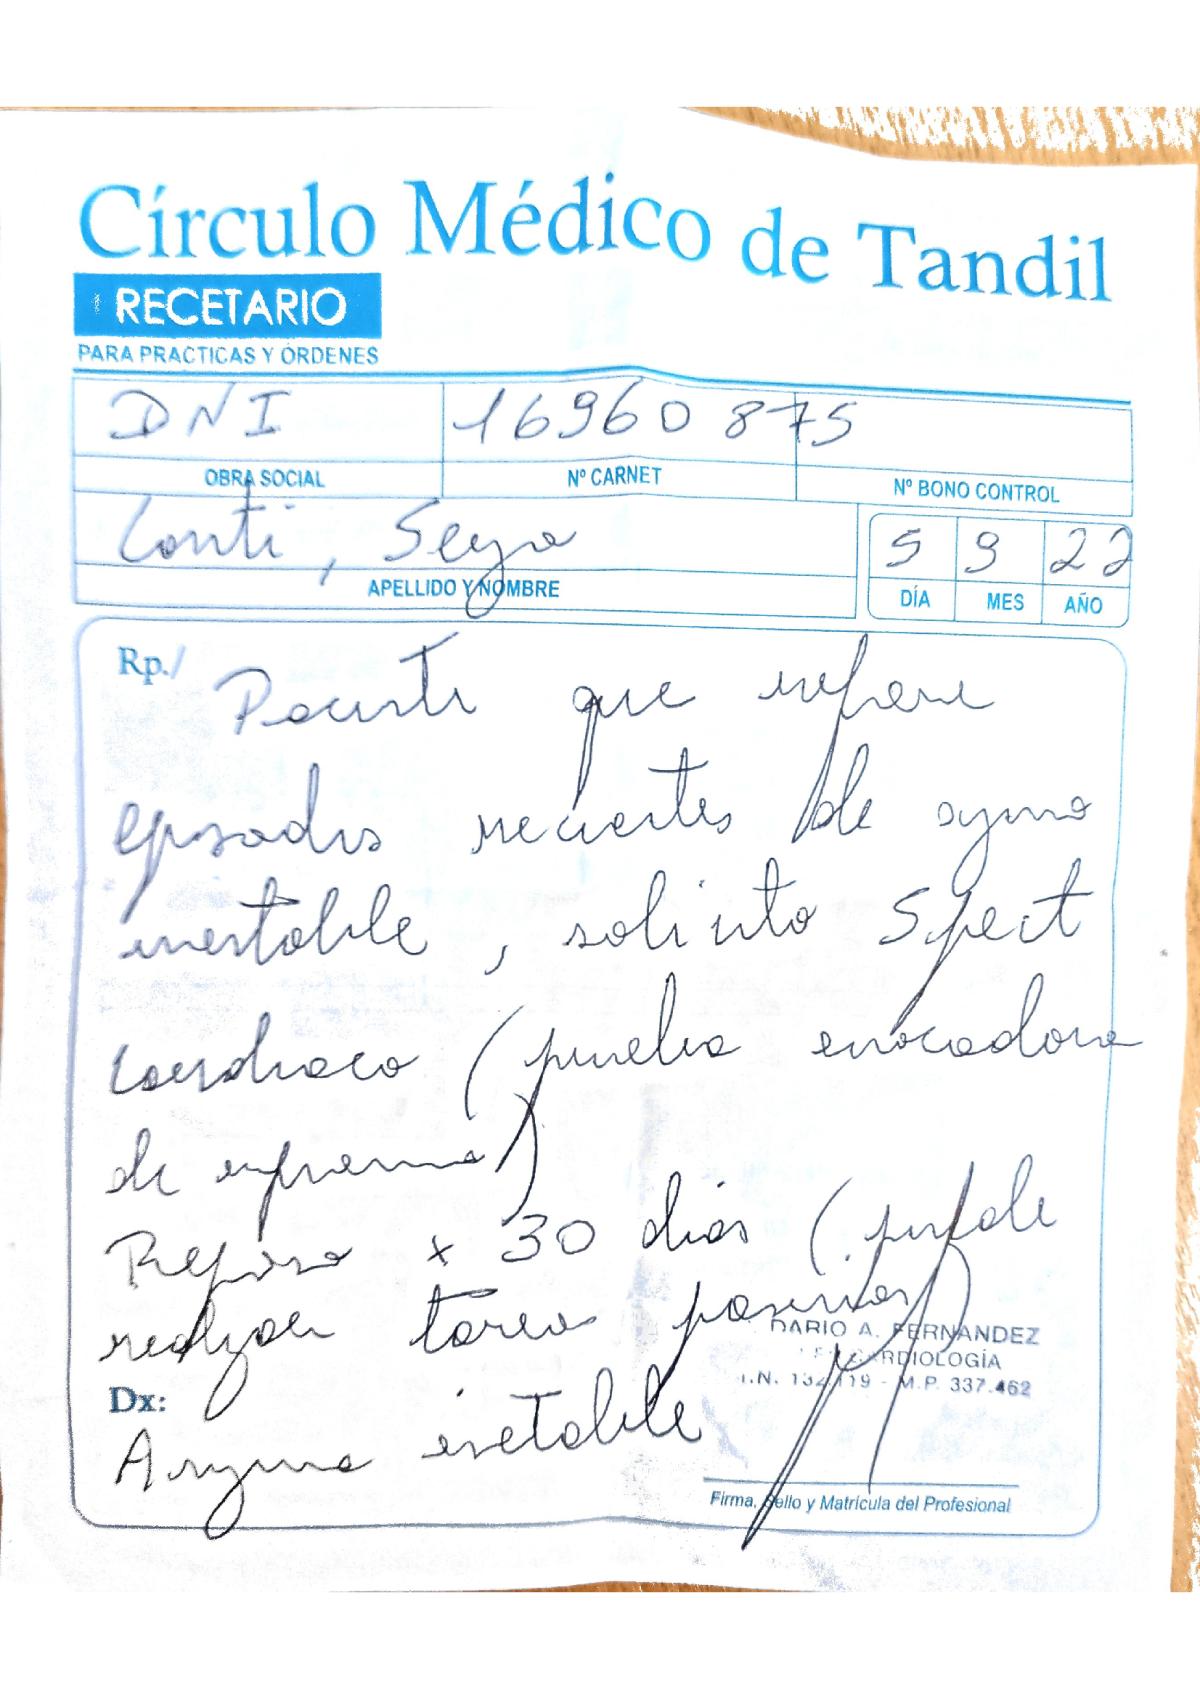 Círculo Médico de Tandil
RECETARIO
PARA PRACTICAS Y ÓRDENES
DNI 16960875
OBRA SOCIAL Nº CARNET Nº BONO CONTROL
Conti, 5 9 22
APELLIDO Y NOMBRE DÍA MES AÑO
Rp./ Paciente que refiere
episodios recientes de angina
inestable, solicito Spect
cardiaco (prueba evocadora
de isquemia)
Reposo x 30 dias (puede
realizar tareas pasivas)
DARIO A. FERNANDEZ
CARDIOLOGÍA
M.P. 337.462
Dx:
Angina inestable
Firma, Sello y Matrícula del Profesional